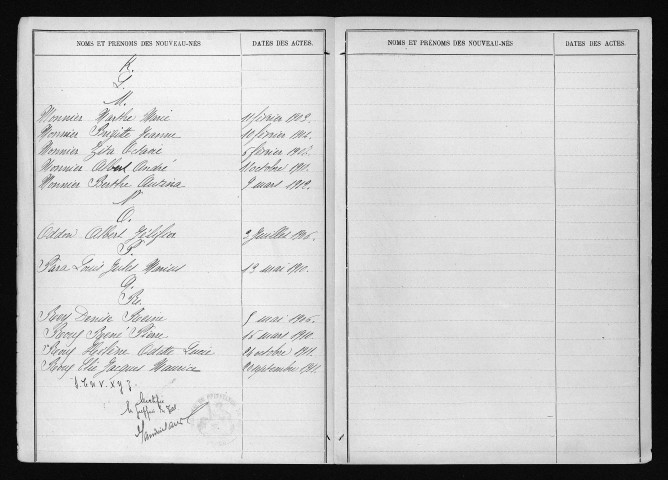 NOMS ET PRÉNOMS DES NOUVEAU-NÉS DATES DES ACTES.
K.
L.
M.
Monnier Marthe Marie 11 février 1903.
Monnier Brigitte Jeanne 10 février
Monnier Zita Octavie février
Monnier Albert André octobre 1911.
Monnier Berthe 9 mars 1912.
N.
O.
Oddon Albert 3 Juillet 1906.
P.
Para Louis Jules Marius 13 mai 1910.
Q.
R.
Roux Denise 5 mai 1906.
Roux René Pierre 15 mars 1910.
Roux Hélène Odette Lucie octobre 1911.
Roux Elie Jacques Maurice septembre
S. T. U. V. X. Y. Z.
NOMS ET PRÉNOMS DES NOUVEAU-NÉS DATES DES ACTES.